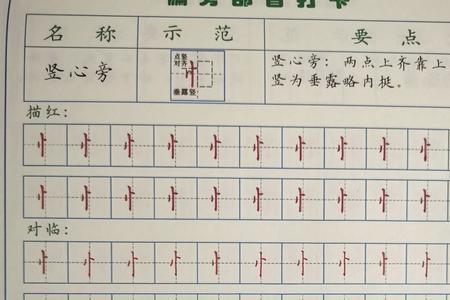 偏旁部首打卡
名称 示范 要点
竖心旁 点竖对齐 垂露竖 竖心旁：两点上齐靠上
竖为垂露略内挺。
描红：
忄 忄 忄 忄 忄 忄 忄 忄 忄 忄
忄 忄 忄 忄 忄 忄 忄 忄 忄 忄
对临：
忄 忄 忄 忄 忄 忄 忄 忄 忄 忄